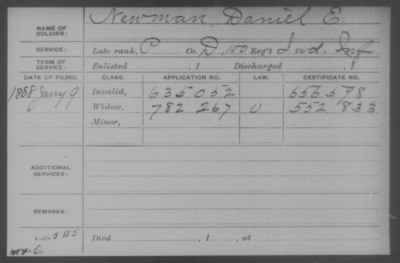 NAME OF SOLDIER: Newman, Daniel E.
SERVICE: Late rank, P Co. D, 100 Reg't Ind. Inf
TERM OF SERVICE: Enlisted , 1 Discharged , 1
DATE OF FILING. CLASS. APPLICATION NO. LAW. CERTIFICATE NO.
1888 Jany 9 Invalid, 635 052 656 598
Widow, 782 267 552 833
Minor,
ADDITIONAL SERVICES:
REMARKS:
Died , 1 , at